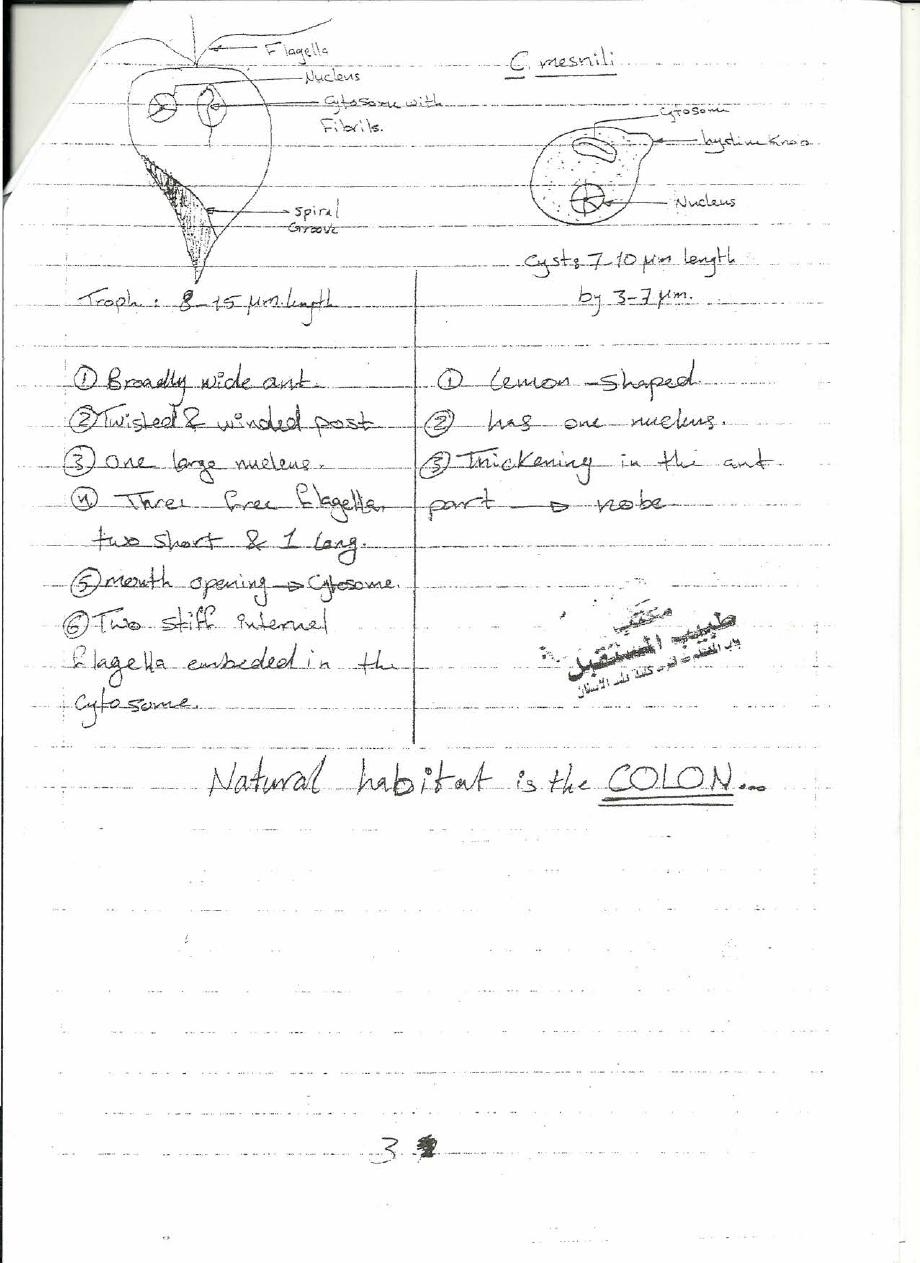 C. mesnili
Flagella
Nucleus
Cytosome with
Fibrils.
Spiral
Groove
Troph : 8-15 μm length
① Broadly wide ant.
② Twisted & winded post
③ one large nucleus.
④ Three free flagella,
two short & 1 long.
⑤ mouth opening → Cytosome.
⑥ Two stiff internel
flagella embeded in the
Cytosome.
Cytosome
Nucleus
Cyst : 7-10 μm length
by 3-7 μm.
① Lemon-shaped
② has one nucleus.
③ Thickening in the ant.
part → nobe
مكتب
طبيب المستقبل
Natural habitat is the COLON...
3